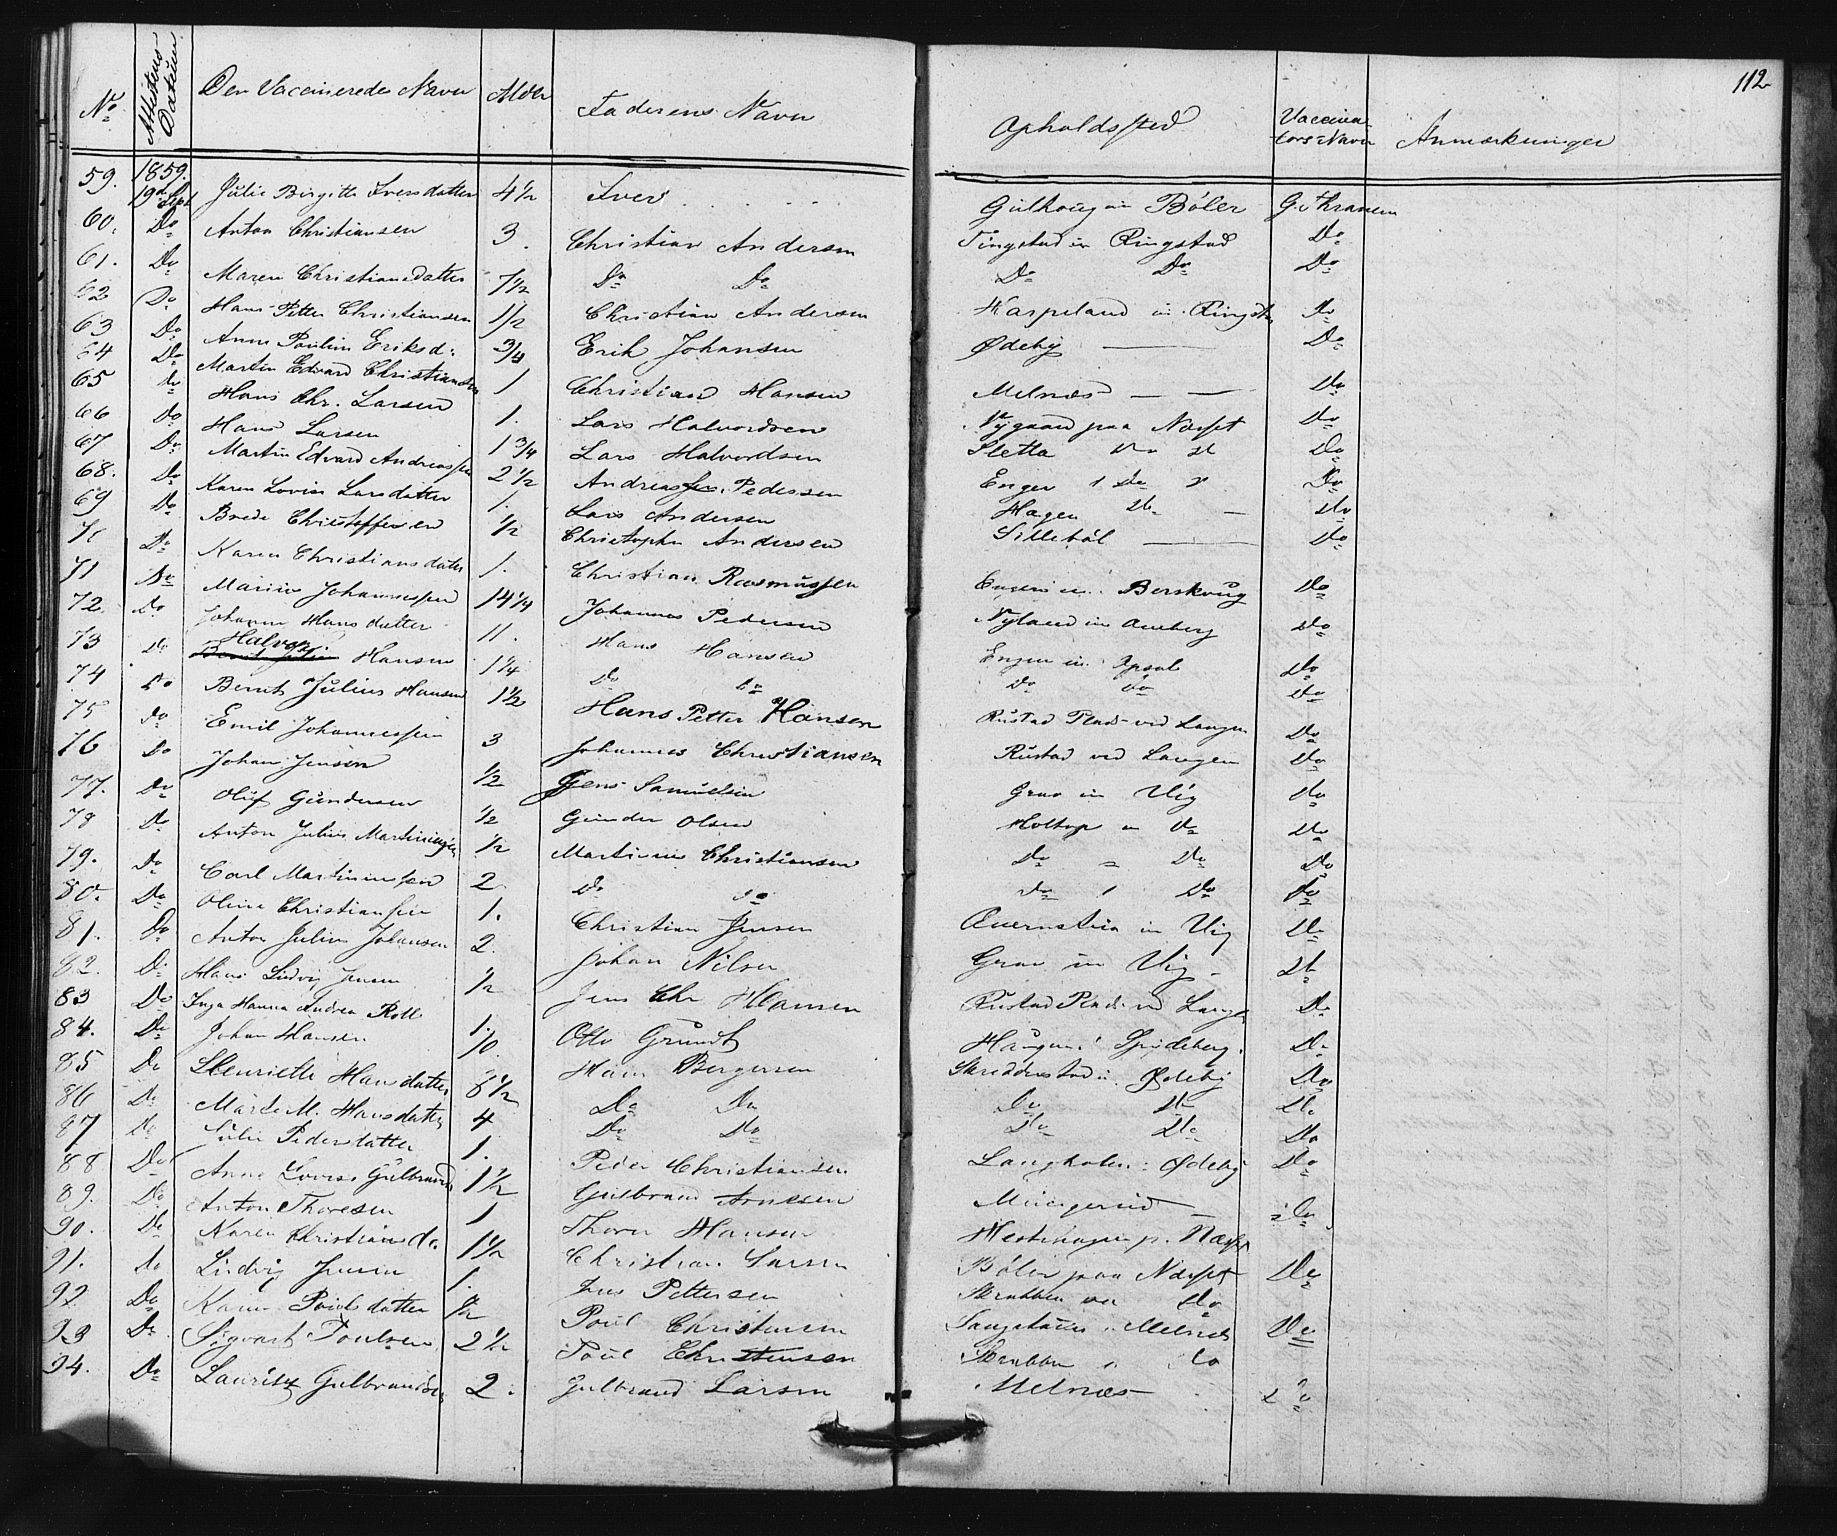 112
No Attestens Datum Den Vaccineredes Navn Alder Faderens Navn Opholdssted Vaccinators Navn Anmærkninger
59. 1859. 19de Sept Julie Birgitte Iversdatter 4 1/2 Iver Bøler
60. Do Anton Christiansen 3. Christian Andersen Tingstad in Ringstad Do
61. Do Maren Christiansdatter 7 1/2 Do Do Do Do Do
62 Do Hans Petter Christiansen 1/2 Christian Andersen Karpeland in Ringst. Do
63 Do Anne Pouline Eriksd: 3/4 Erik Johansen Ødeby — Do
64 Do Martin Edvard Christiansen 1 Christian Hansen Melnæs — — Do
65 do Hans Chr. Larsen 1. Lars Halvordsen Nygaard paa Næsset Do
66 Do Hans Larsen 1 3/4 Lars Halvordsen Sletta Do Do
67 Do Martin Edvard Andreassen 2 1/2 Andreas Pedersen Enger Do Do
68. Do Karen Lovise Larsdatter 1. Lars Andersen Hagen Do — Do
69 Do Brede Christoffersen 1/2 Christopher Andersen Sillebøl — Do
70 Do Karen Christiansdatter 1. Christian Rasmussen Engen in Berskoug Do
71 Do Marius Johannessen 14 1/4 Johannes Pedersen Nyland in Do
72. Do Johanne Hansdatter 11. Hans Hansen Engen in Opsal Do
73 Do Halvor Hansen 1 1/4 Do Do Do Do Do
74 Do Bernt Julius Hansen 1 1/2 Hans Petter Hansen Rustad Plads ved Langen Do
75 Do Emil Johannessen 3 Johannes Christiansen Rustad ved Langen Do
76 Do Johan Jensen 1/2 Jens Samuelsen Grav in Vig Do
77. Do Oluf Gundersen 1/2 Gunder Olsen Holtop in Do Do
78 Do Anton Julius Martinusen 1/2 Martinus Christiansen Do Do Do
79. Do Carl Martinussen 2 Do Do Do Do Do
80. Do Oline Christiansen 1. Christian Jensen in Vig Do
81. Do Anton Julius Johansen 2. Johan Nilsen Grav in Vig Do
82. Do Hans Ludvig Jensen 1/2 Jens Chr Hansen Rustad Plads ved Langen Do
83 Do Inga Hanna Andrea Roll 1. Otto Grundt Haugen i Spydeberg. Do
84. Do Johan Hansen 10. Hans Bergersen Skredderstad i Ødeby Do
85 Do Henriette Hansdatter 6 1/2 Do Do Do Do Do
86 Do Marte M. Hansdatter 4 Do Do Do Do Do
87 Do Julie Pedersdatter 1. Peder Christiansen Langholen i Ødeby Do
88 Do Anne Lovise Gulbrandsd 1 1/2 Gulbrand Arnesen — Do
89. Do Anton Thoresen 1 Thorer Hansen p. Næsset
90. Do Karen Christiansd. 1 1/2 Christian Larsen Bøler paa Næsset Do
91. Do Ludvig Jensen 1. Jens Pettersen Do
92 Do Karen Poulsdatter 1/2 Poul Christensen i Melnæs Do
93 Do Sigvart Poulsen 2 1/2 Poul Christensen Do
94. Do Lauritz Gulbrandsen 2. Gulbrand Larsen Melnæs Do